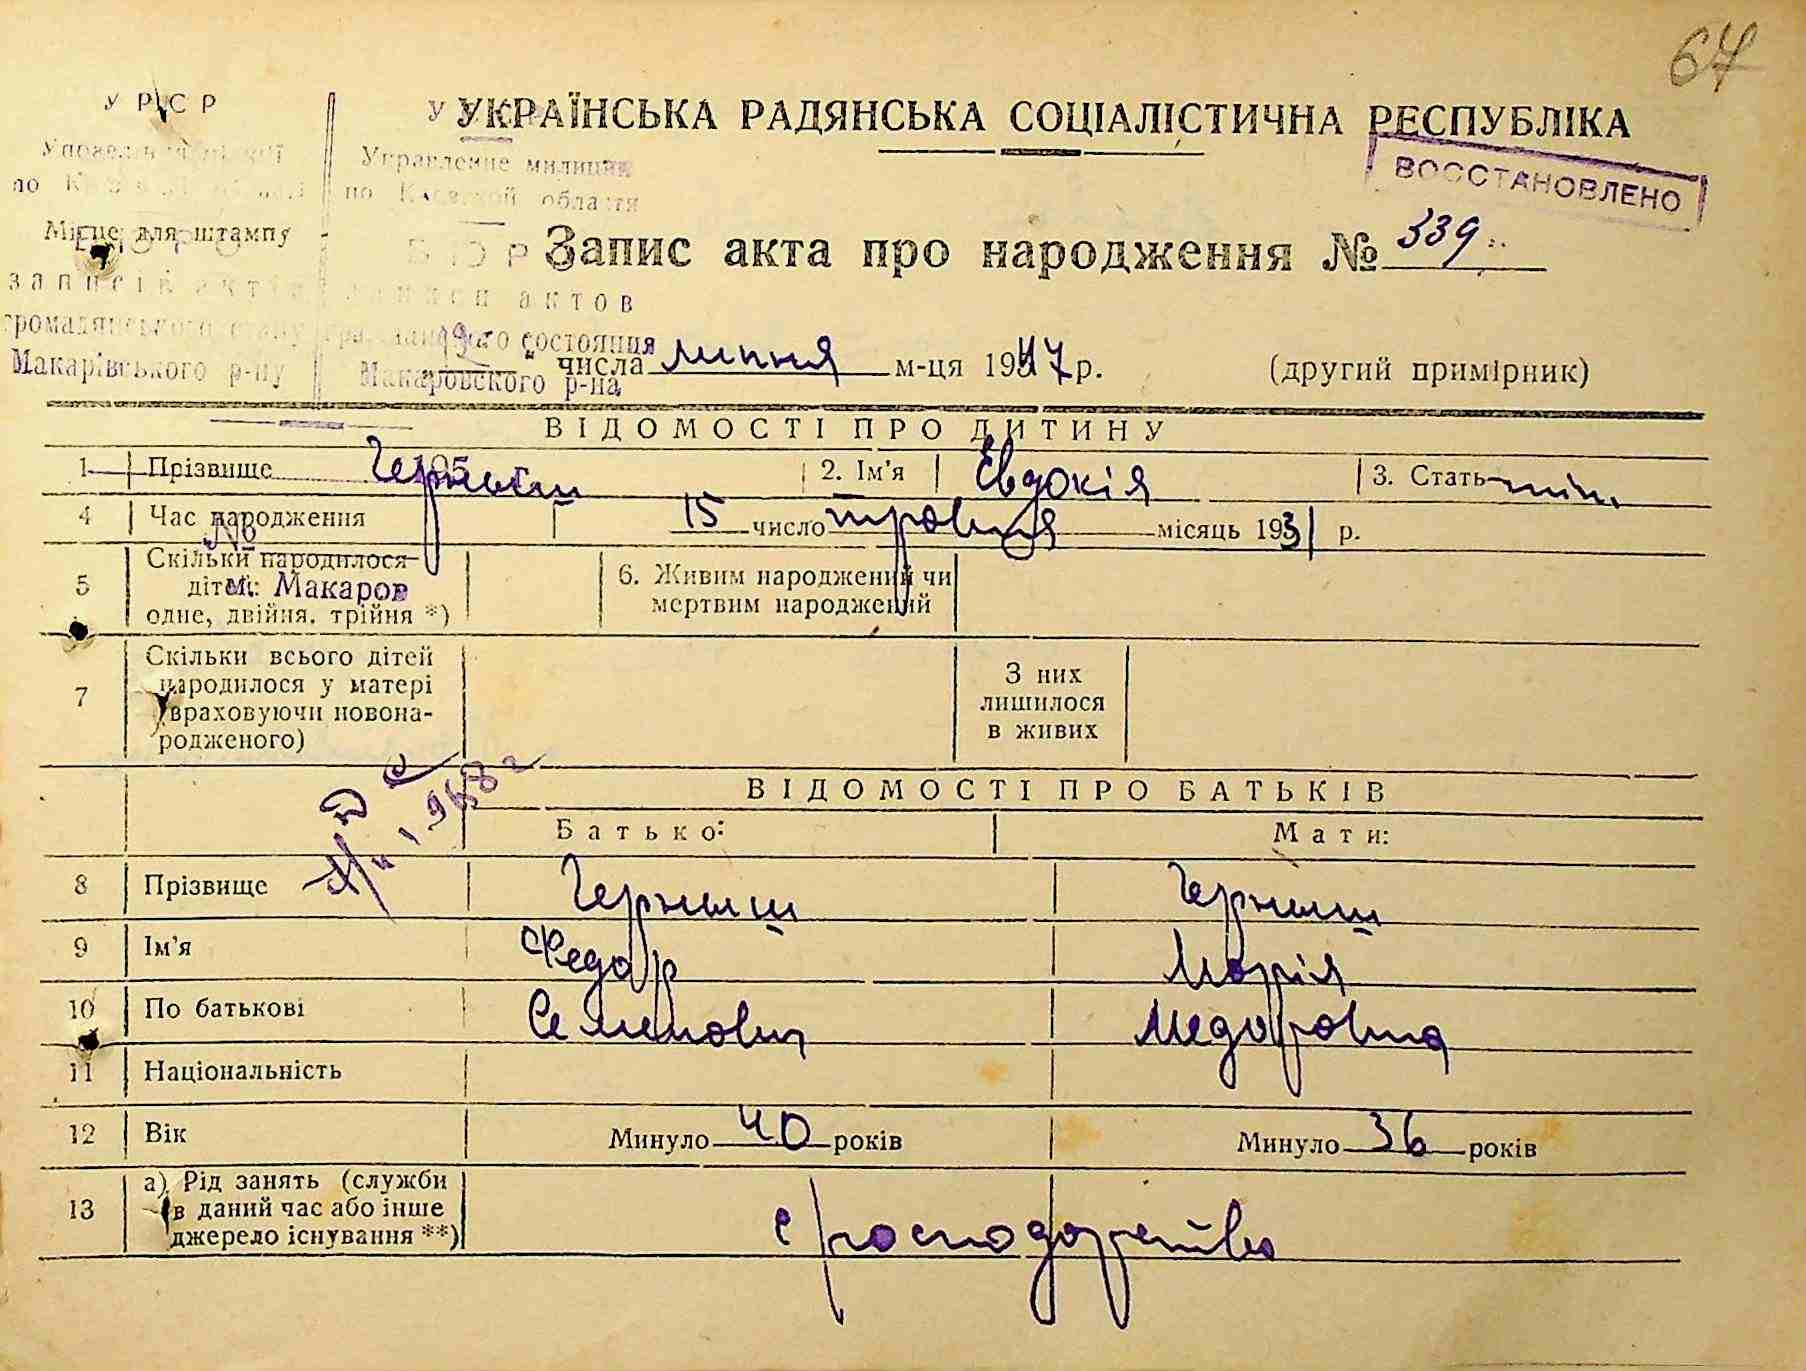 67
УРСР
УКРАЇНСЬКА РАДЯНСЬКА СОЦІАЛІСТИЧНА РЕСПУБЛІКА
Управление милиции
по Киевской области
ВОССТАНОВЛЕНО
Місце для штампу
Запис акта про народження № 339
записів актів записи актов
громадянського стану гражданского состояния
Макарівського р-ну Макаровского р-на
19 " числа липня м-ця 1947 р. (другий примірник)
ВІДОМОСТІ ПРО ДИТИНУ
1 Прізвище Черниш 2. Ім'я Євдокія 3. Стать жін.
195
4 Час народження 15 число травня місяць 1931 р.
№
5 Скільки народилося
дітей:
м. Макаров
одне, двійня, трійня *)
6. Живим народжений чи
мертвим народжений
7 Скільки всього дітей
народилося у матері
(враховуючи новона-
родженого)
З них
лишилося
в живих
ВІДОМОСТІ ПРО БАТЬКІВ
Батько: Мати:
8 Прізвище Черниш Черниш
9 Ім'я Федор Марія
10 По батькові Семенович
11 Національність
12 Вік Минуло 40 років Минуло 36 років
13 а) Рід занять (служби
в даний час або інше
джерело існування **)
с господарство